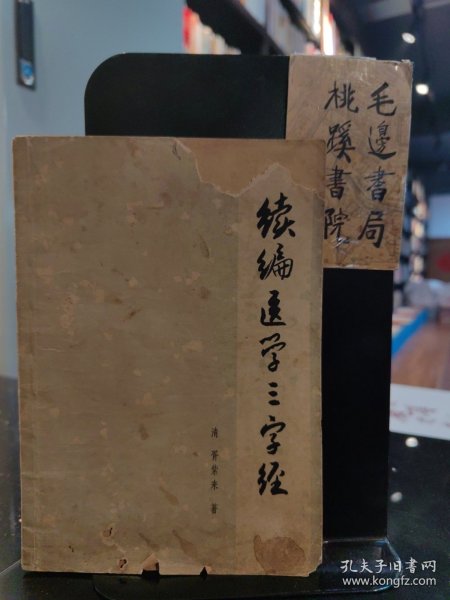 毛邊書局
桃蹊書院
续编医学三字经
清 胥紫来 著
孔夫子旧书网
www.kongfz.com